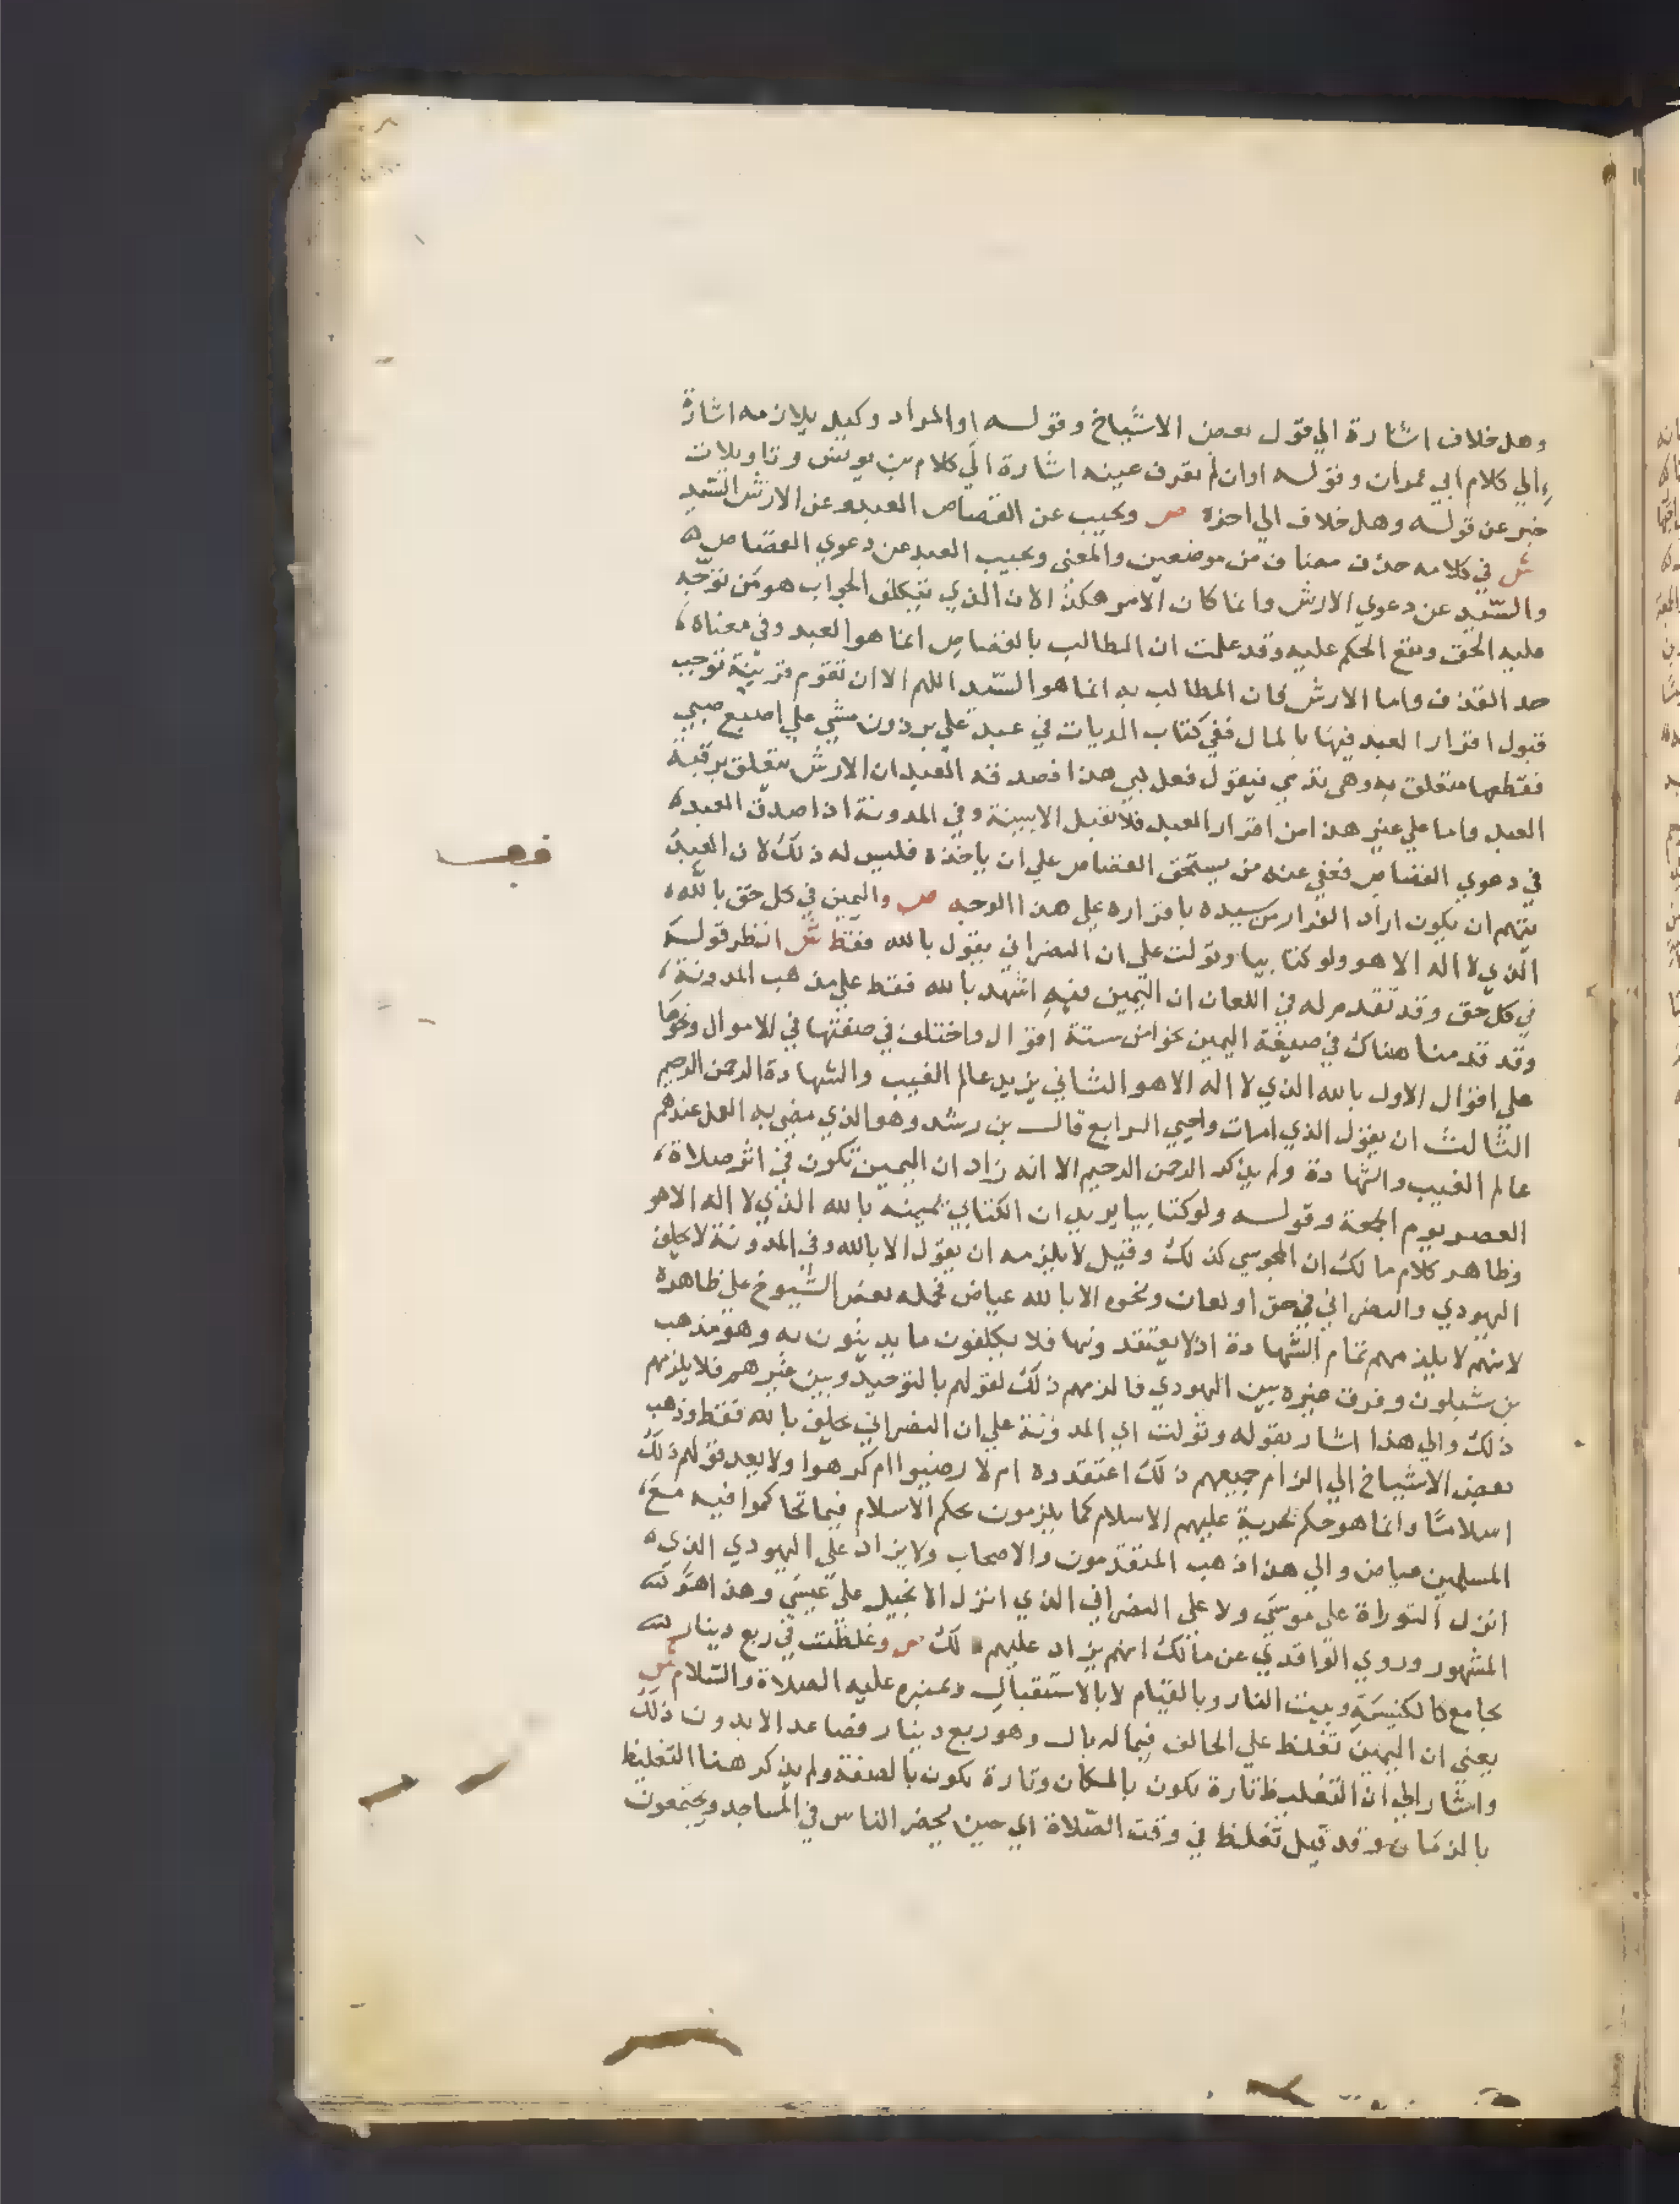 وهل خلاف اشارة الي قول بعض الاشياخ وقوله او المراد وكيل يلازمه اشارة
الي كلام ابي عمران وقوله اوان لم تعرف عينه اشارة الي كلام بن يونس وتاويلات
خبر عن قوله وهل خلاف الي اخره ص ويجيب عن القصاص العبد وعن الارش السيد
ش في كلامه حذف مضاف من موضعين والمعني ويجيب العبد عن دعوي القصاص
والسيد عن دعوي الارش وانما كان الامر هكذا لان الذي يتكلف الجواب هو من توجه
عليه الحق ويقع الحكم عليه وقد علمت ان المطالب بالقصاص انما هو العبد وفي معناه
حد القذف واما الارش فان المطالب به انما هو السيد اللهم الا ان تقوم قرينة توجب
قبول اقرار العبد فيها بالمال ففي كتاب الديات في عبد علي برذون مشي علي اصبع صبي
فقطعها متعلق به وهي تدمي فيقول فعل بي هذا فصدقه العبد ان الارش يتعلق برقبة
العبد واما علي غير هذا من اقرار العبد فلا تقبل الا ببينة وفي المدونة اذا صدق العبد
في دعوي القصاص فعفي عنه من يستحق القصاص علي ان ياخذه فليس له ذلك لان العبد
يتهم ان يكون اراد الفرار من سيده باقراره علي هذا الوجه ص واليمين في كل حق بالله
الذي لا اله الا هو ولو كتابيا وتولت علي ان النصراني يقول بالله فقط ش انظر قوله
في كل حق وقد تقدم له في اللعان ان اليمين فيه اشهد بالله فقط علي مذهب المدونة
وقد قدمنا هناك في صيغة اليمين نحوا من ستة اقوال واختلف في صفتها في الاموال ونحوها
علي اقوال الاول بالله الذي لا اله الا هو الثاني يزيد عالم الغيب والشهادة الرحمن الرحيم
الثالث ان يقول الذي امات واحيي الرابع قال بن رشد وهو الذي مضي به العمل عندهم
عالم الغيب والشهادة ولم يذكر الرحمن الرحيم الا انه زاد ان اليمين تكون في اثر صلاة
العصر يوم الجمعة وقوله ولو كتابيا يريد ان الكتابي يمينه بالله الذي لا اله الا هو
وظاهر كلام مالك ان المجوسي كذلك وقيل لا يلزمه ان يقول الا بالله وفي المدونة لا يحلف
اليهودي والنصراني في حق او لعان ونحوه الا بالله عياض فحمله بعض الشيوخ علي ظاهره
لانهم لا يلزمهم تمام الشهادة اذ لا يعتقدونها فلا يكلفون ما يدينون به وهو مذهب
بن شبلون وفرق غيره بين اليهودي فالزمهم ذلك لقولهم بالتوحيد وبين غيرهم فلا يلزمهم
ذلك والي هذا اشار بقوله وتولت اي المدونة علي ان النصراني يحلف بالله فقط وذهب
بعض الاشياخ الي الزام جميعهم ذلك اعتقدوه ام لا رضيوا ام كرهوا ولا يعد قولهم ذلك
اسلاما وانما هو حكم يجريه عليهم الاسلام كما يلزمون بحكم الاسلام فيما تحاكموا فيه مع
المسلمين عياض والي هذا ذهب المتقدمون والاصحاب ولا يزاد علي اليهودي الذي
انزل التوراة علي موسي ولا علي النصراني الذي انزل الانجيل علي عيسي وهذا هو
المشهور وروي الواقدي عن مالك انهم يزاد عليهم ذلك ص وغلظت في ربع دينار
بجامع كالكنيسة وبيت النار وبالقيام لا بالاستقبال وبمنبره عليه الصلاة والسلام ش
يعني ان اليمين تغلظ علي الحالف فيما له بال وهو ربع دينار فصاعدا لا بدون ذلك
واشار الي ان التغليظ تارة يكون بالمكان وتارة يكون بالصفة ولم يذكر هنا التغليظ
بالزمان وقد قيل تغلظ في وقت الصلاة اي حين يحضر الناس في المساجد ويجتمعون